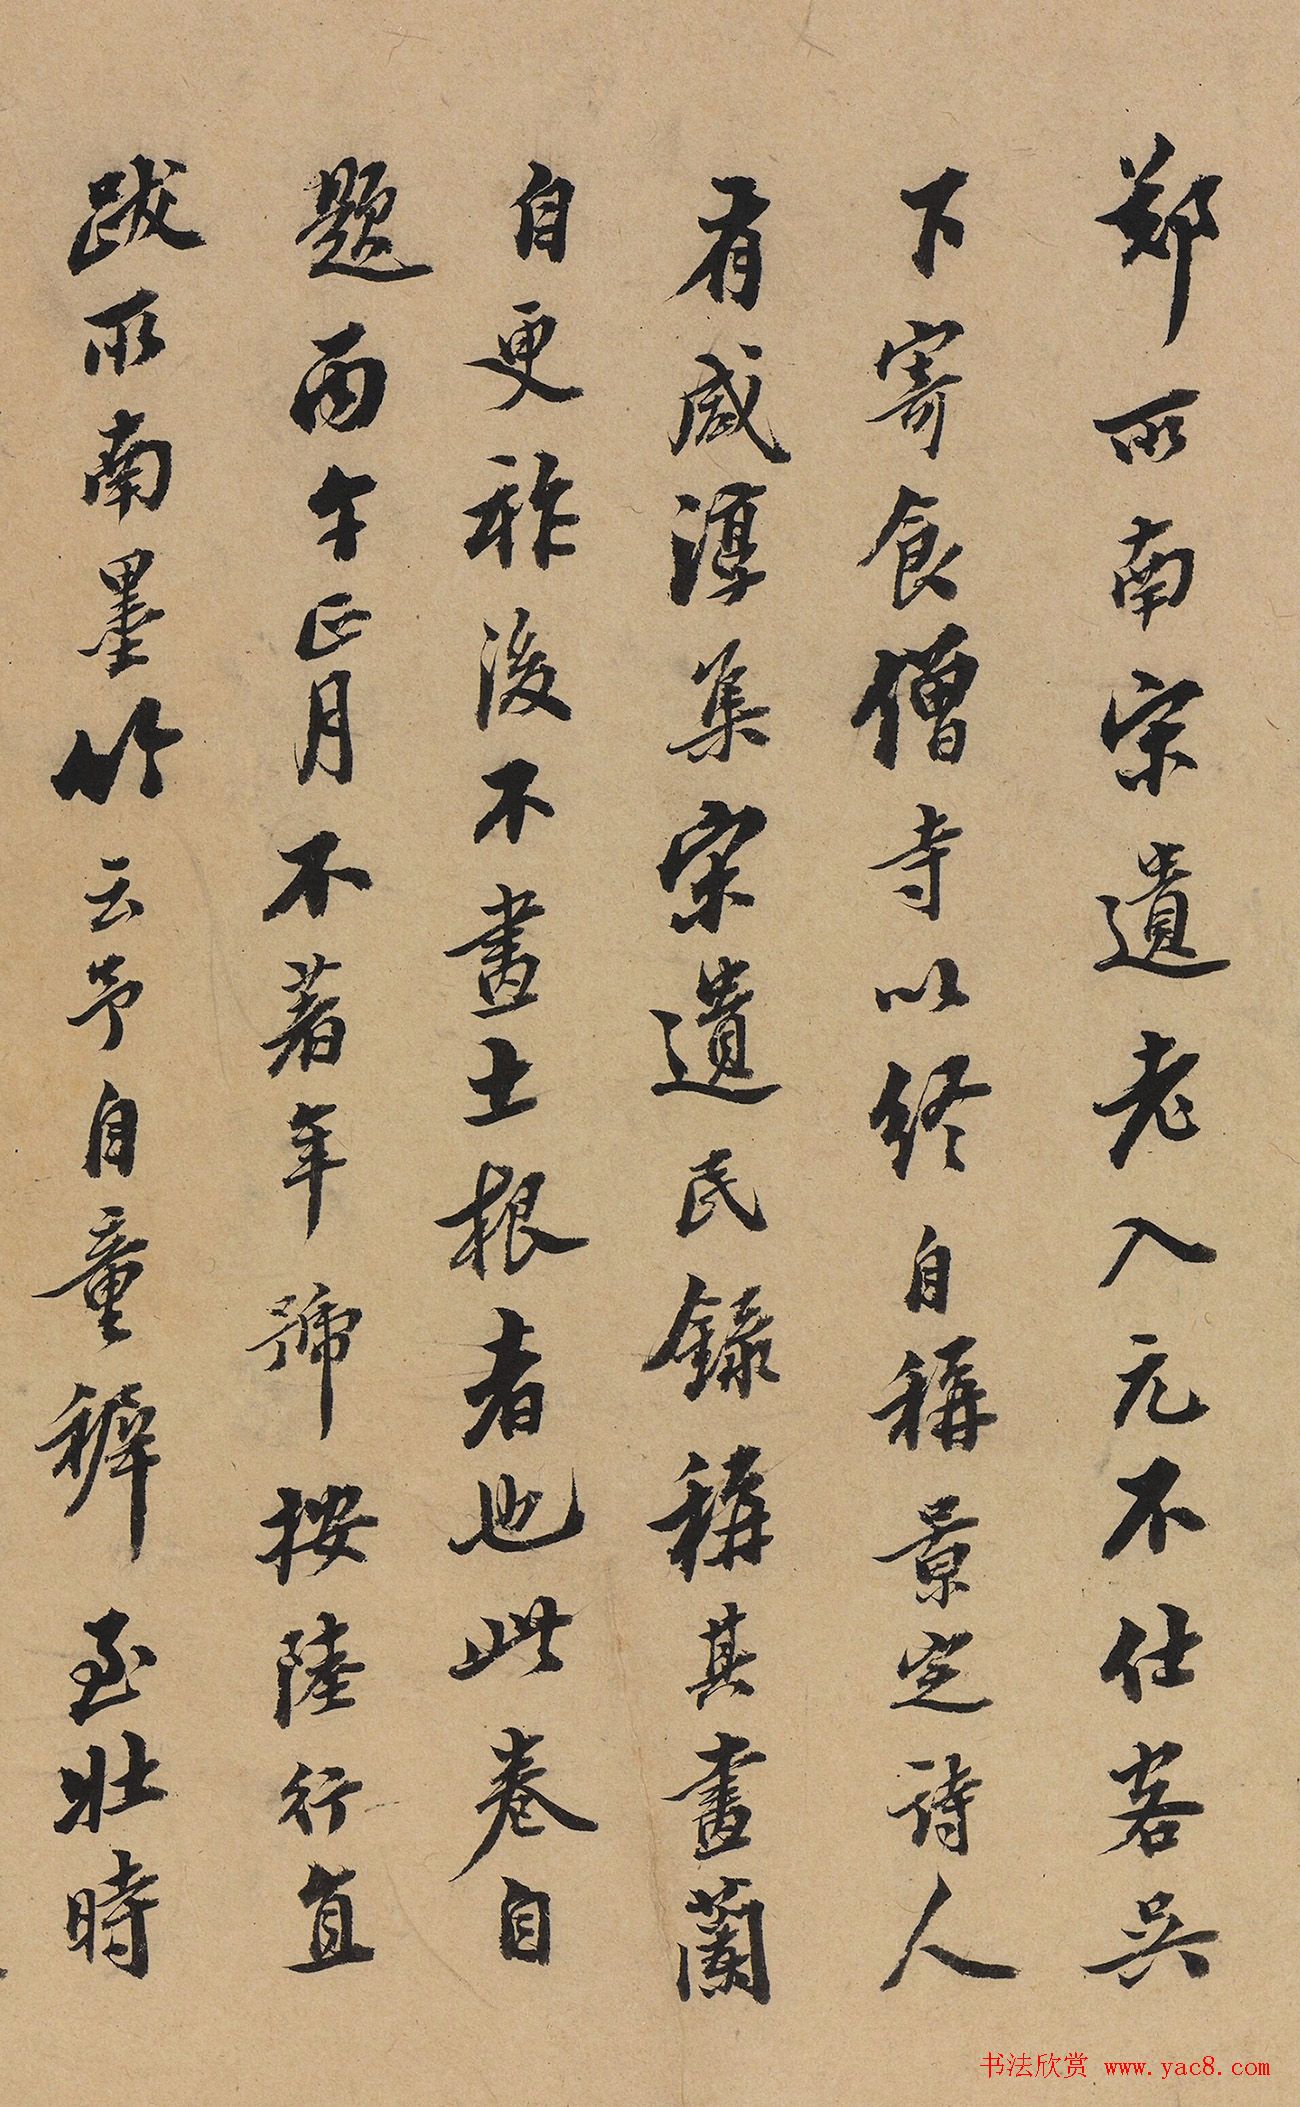 鄭所南宋遺老入元不仕客吳
下寄食僧寺以終自稱景定詩人
有咸淳集宋遺民錄稱其畫蘭
自更祚後不畫土根者也此卷自
題丙午正月不著年號按陸行直
跋所南墨竹云予自童穉至壯時
书法欣赏 www.yac8.com